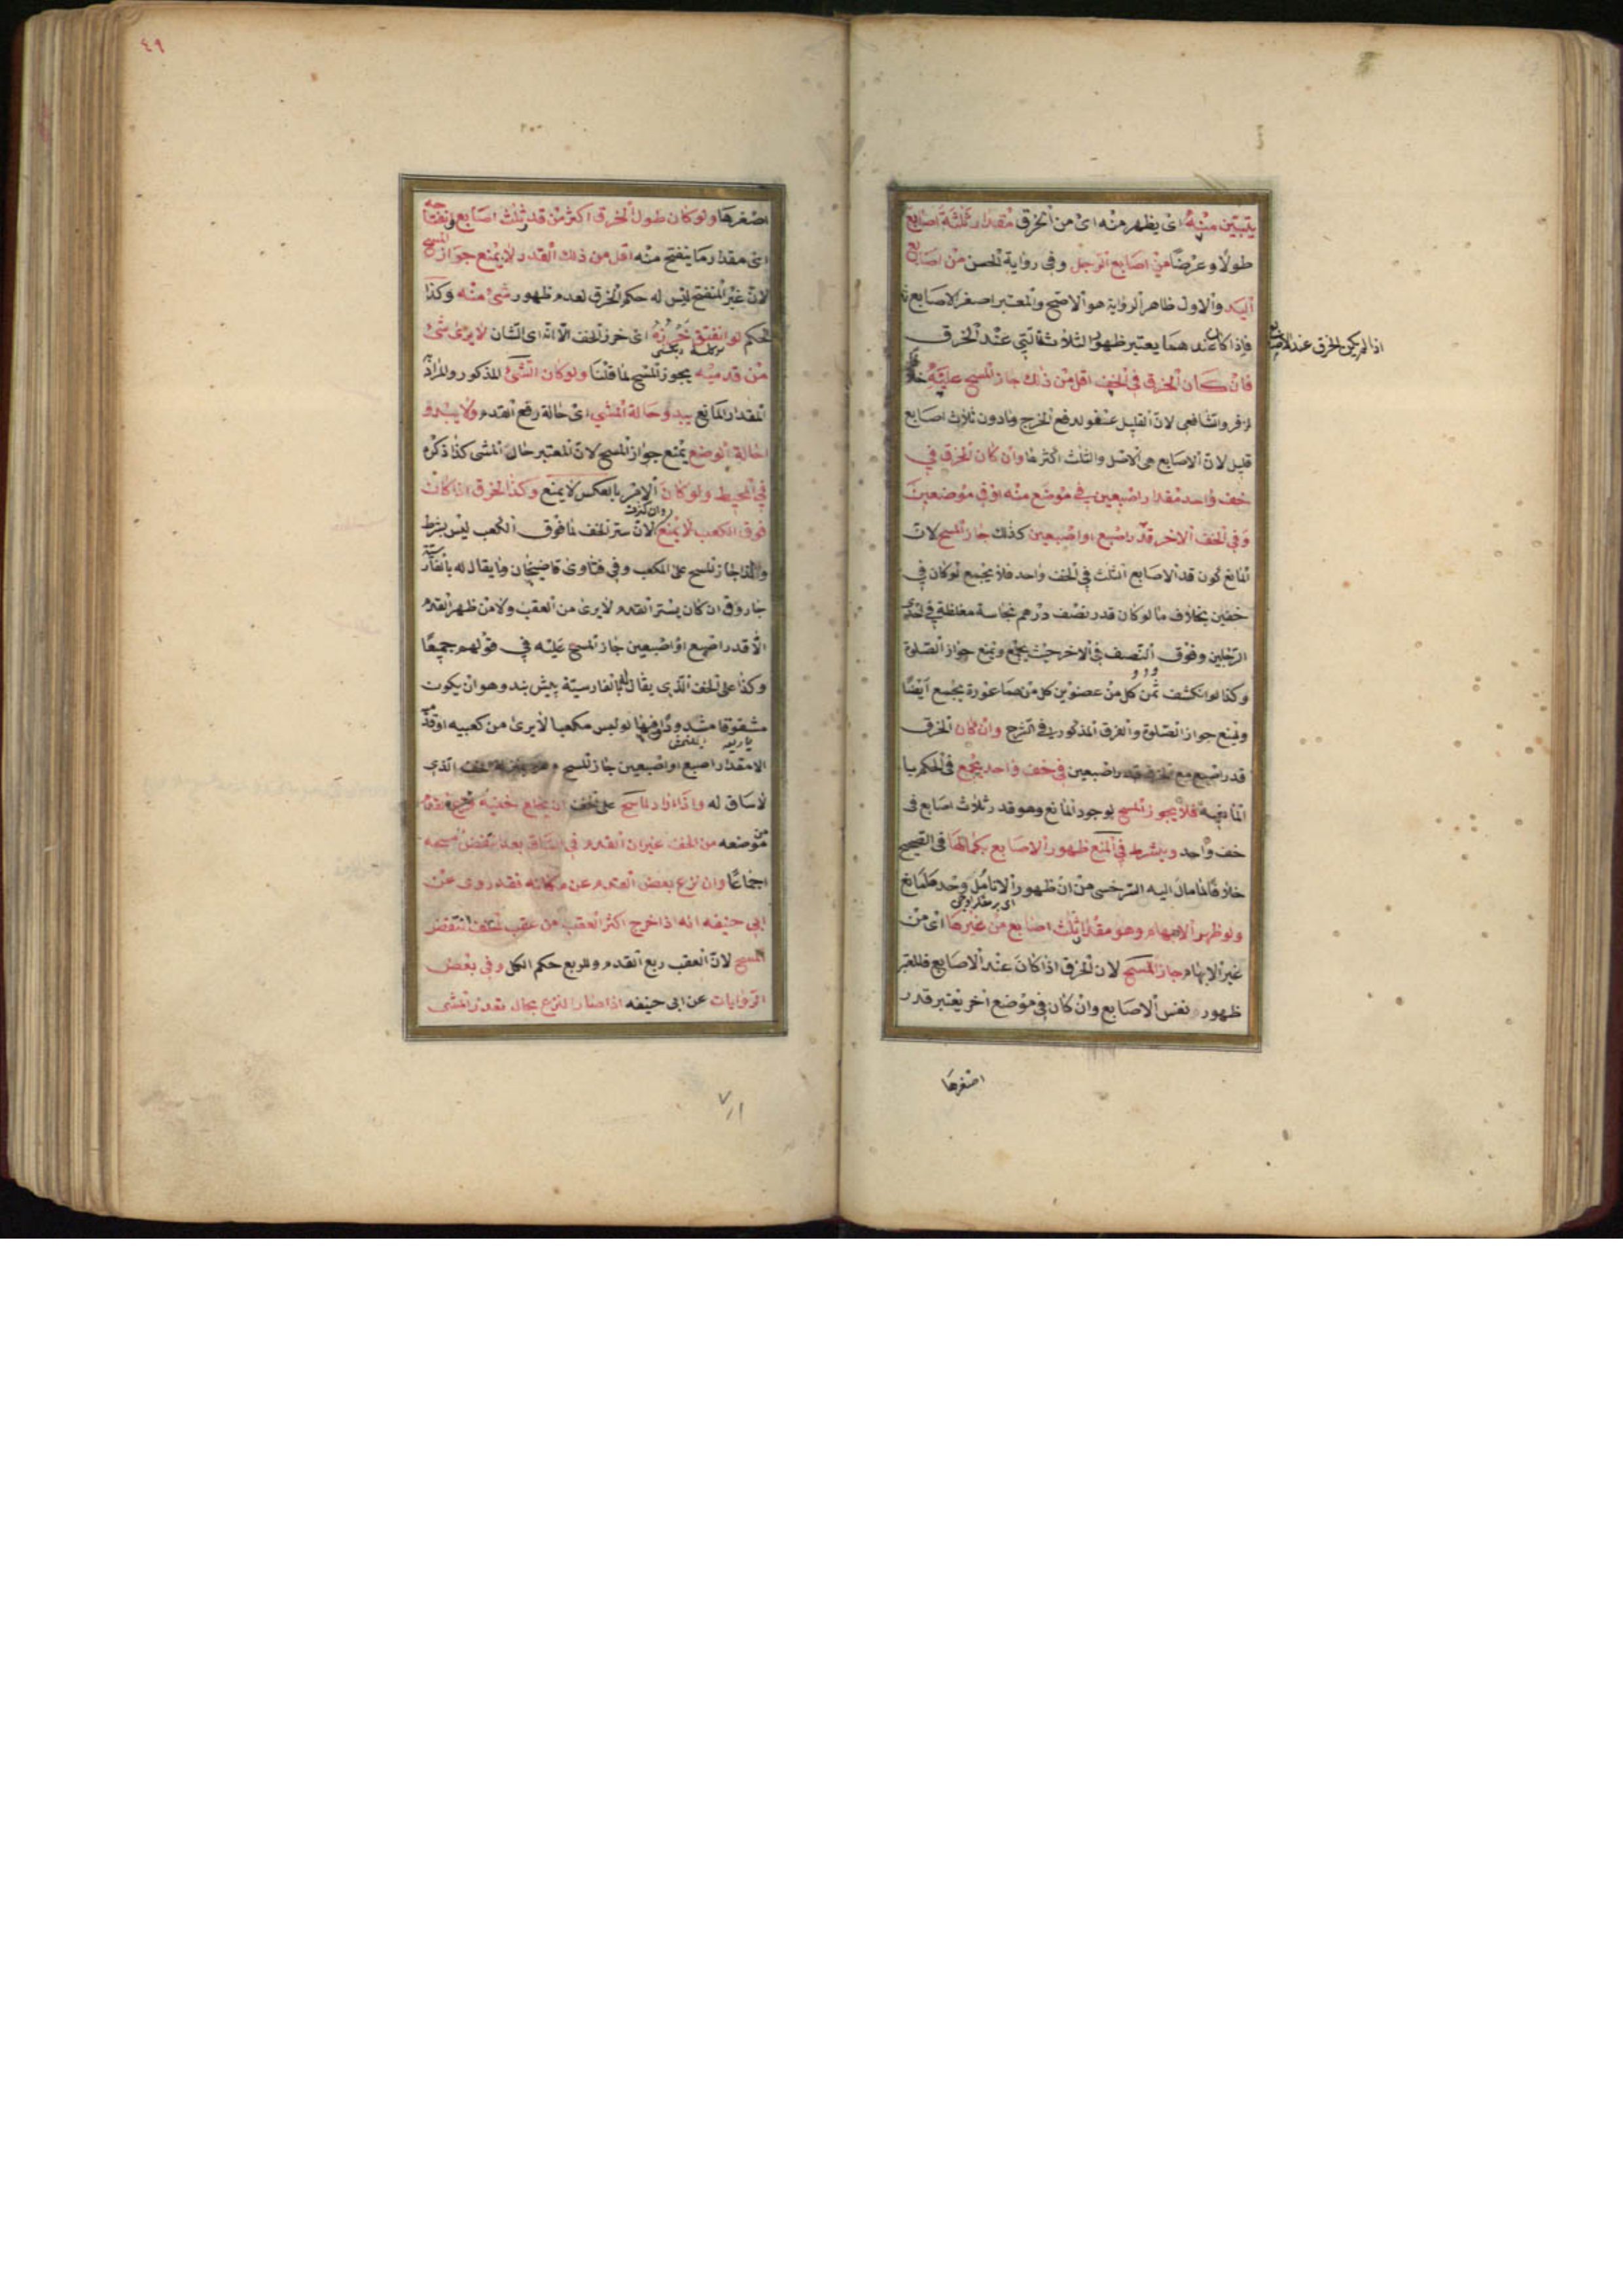 يتبين منه اى يظهر منه اى من الخرق مقدار ثلثة اصابع
طولا وعرضا من اصابع الرجل وفى رواية الحسن من اصابع
اليد والاول ظاهر الرواية هو الاصح والمعتبر اصغر الاصابع
اذا لم يكن الخرق عند الاصابع
فاذا كان عندها يعتبر ظهور الثلاث التى عند الخرق
فان كان الخرق فى الخف اقل من ذلك جاز المسح عليه خلافا
لزفر والشافعى لان القليل عفو لدفع الحرج ومادون ثلاث اصابع
قليل لان الاصابع هى الاصل والثلث اكثرها وان كان الخرق فى
خف واحد مقدار اصبعين فى موضع منه او فى موضعين
وفى الخف الاخر قدر اصبع او اصبعين كذلك جاز المسح لان
المانع كون قدر الاصابع الثلث فى الخف واحد فلا يجمع لو كان فى
خفين بخلاف ما لو كان قدر نصف درهم نجاسة مغلظة فى احدى
الرجلين وفوق النصف فى الاخر حيث يجمع ويمنع جواز الصلوة
وكذا لو انكشف ثمن كل من عضوين كل منهما عورة يجمع ايضا
ويمنع جواز الصلوة والفرق المذكور فى الشرح وان كان الخرق
قدر اصبع مع الخرق قدر اصبعين فى خف واحد يجمع فى الحكم با
لمانعية فلا يجوز المسح لوجود المانع وهو قدر ثلاث اصابع فى
خف واحد ويشترط فى المنع ظهور الاصابع بكمالها فى الصحيح
خلافا لما مال اليه السرخسى من ان ظهور الانامل وحدها مانع
ولو ظهر الابهام وهو مقدار ثلث اصابع من غيرها اى من
غير الابهام جاز المسح لان الخرق اذا كان عند الاصابع فالمعتبر
ظهور نفس الاصابع وان كان فى موضع اخر يعتبر قدر
اصغرها
٤٩
اصغرها ولو كان طول الخرق اكثر من قدر ثلث اصابع وانفتاحه
اى مقدار ما ينفتح منه اقل من ذلك القدر لا يمنع جواز المسح
لان غير المنفتح ليس له حكم الخرق لعدم ظهور شئ منه وكذا
الحكم لو انفتق خرزه اى خرز الخف الا انه اى الشان لا يرى شئ
من قدميه يجوز المسح لما قلنا ولو كان الشئ المذكور والمراد
المقدار المانع يبدو حالة المشى اى حالة رفع القدم ولا يبدو
حالة الوضع يمنع جواز المسح لان المعتبر حال المشى كذا ذكره
فى المحيط ولو كان الامر بالعكس لا يمنع وكذا الخرق اذا كان
فوق الكعب لا يمنع لان ستر الخف لما فوق الكعب ليس بشرط
ولهذا جاز المسح على المكعب وفى فتاوى قاضيخان وما يقال له بالفارسية
جاروق ان كان يستر القدم لا يرى من العقب ولا من ظهر القدم
الا قدر اصبع او اصبعين جاز المسح عليه فى قولهم جميعا
وكذا على الخف الذى يقال له بالفارسية پيش بند وهو ان يكون
مشقوقا مشدودا ولو لبس مكعبا لا يرى من كعبيه او قدميه
الا مقدار اصبع او اصبعين جاز المسح وهو بمنزلة الخف الذى
لا ساق له واذا اراد الماسح على الخف ان يخلع خفيه فنزع القدم
من موضعه من الخف غير ان القدم فى الساق بعد انتقض مسحه
اجماعا وان نزع بعض القدم عن مكانه فقد روى عن
ابى حنيفه انه اذا خرج اكثر العقب من عقب الخف انتقض
المسح لان العقب ربع القدم وللربع حكم الكل وفى بعض
الروايات عن ابى حنيفه اذا صار النزع بحال تعذر المشى